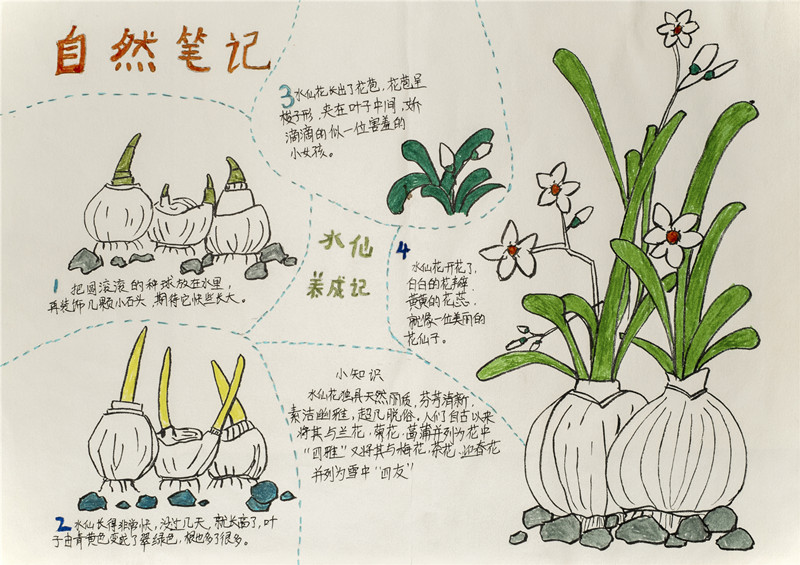 自然笔记
1 把圆滚滚的种球放在水里,
再装饰几颗小石头,期待它快些长大。
2 水仙长得非常快,没过几天,就长高了,叶
子由青黄色变成了翠绿色,根也多了很多。
3 水仙花长出了花苞,花苞呈
梭子形,夹在叶子中间,娇
滴滴的似一位害羞的
小女孩。
水仙
养成记
4 水仙花开花了,
白白的花瓣,
黄黄的花蕊,
就像一位美丽的
花仙子。
小知识
水仙花独具天然丽质,芬芳清新,
素洁幽雅,超凡脱俗。人们自古以来
将其与兰花、菊花、菖蒲并列为花中
“四雅”又将其与梅花、茶花、迎春花
并列为雪中“四友”